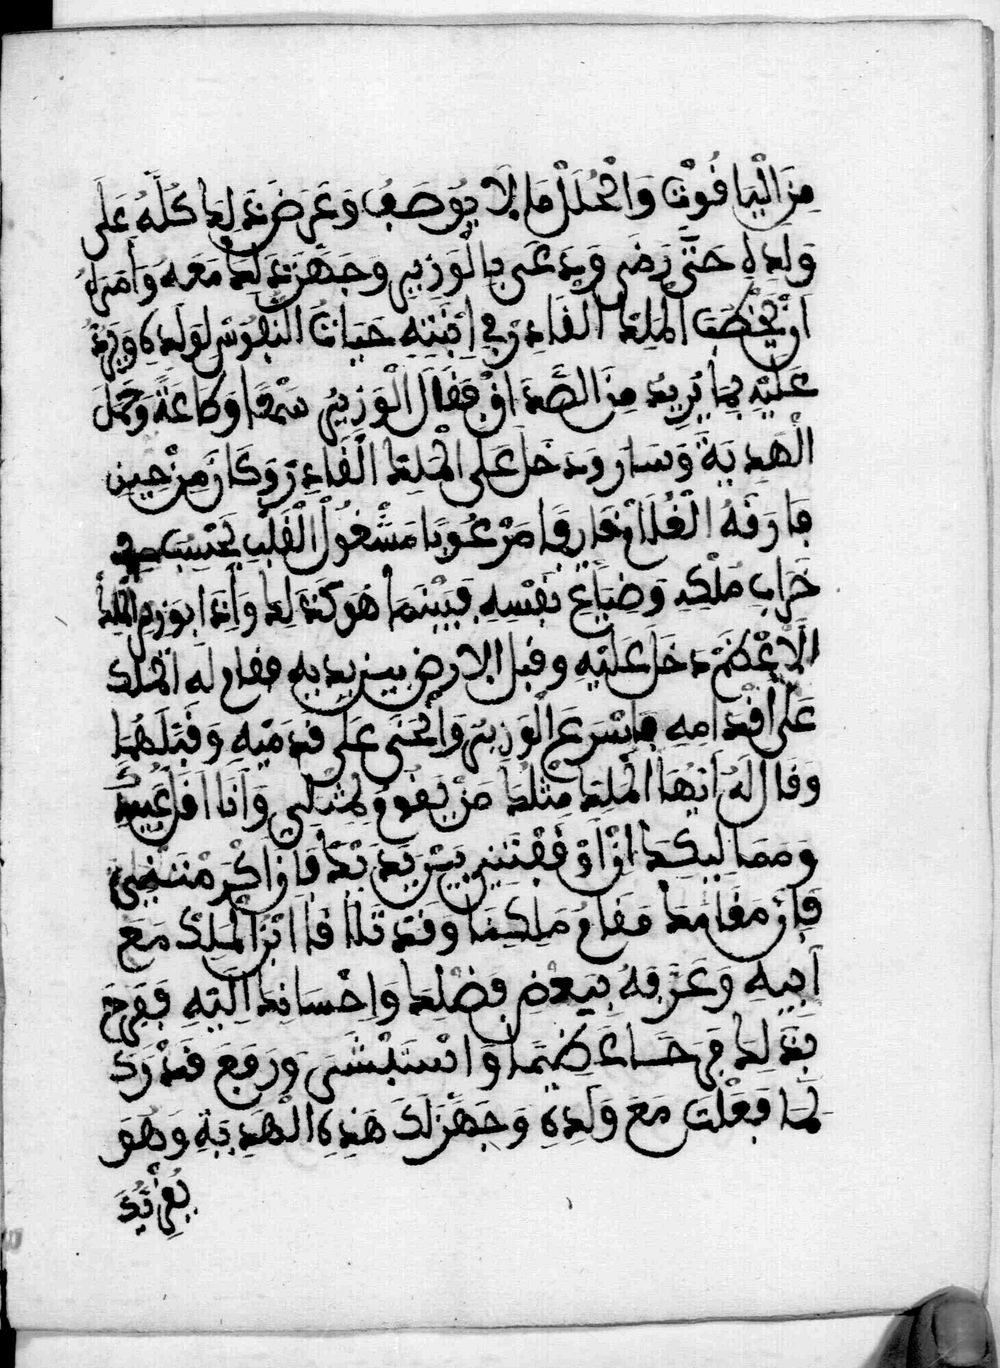 مِنَ الْيَاقُوتْ وَالْحُلَلْ مَا لَا يُوصَفُ وَعَرَضَ ذَلِكَ كُلَّهُ عَلَى
وَلَدِهِ حَتَّى رَضِيَ وَدَعَى بِالْوَزِيرِ وَجَهَّزَ ذَلِكَ مَعَهُ وَأَمَرَهُ
أَنْ يَخْطُبَ الْمَلِكَ الْقَادِرَ فِي ابْنَتِهِ حَيَاتَ النُّفُوسْ لِوَلَدِهِ وَيَزِدْ
عَلَيْهِ بِمَا يُرِيدُ مِنَ الصَّدَاقْ فَقَالَ الْوَزِيرُ سَمْعًا وَطَاعَةً وَحَمَلَ
الْهَدِيَةَ وَسَارَ وَدَخَلَ عَلَى الْمَلِكِ الْقَادِرْ وَكَانَ مِنْ حِينِ
فَارَقَهُ الْغُلَامْ مَرْعُوبًا مَشْغُولْ الْقَلْبِ يَحْتَسِبُ فِي
خَرَابِ مُلْكِهِ وَضِيَاعِ نَفْسِهِ فَبَيْنَمَا هُوَ كَذَلِكَ وَإِذَا بِوَزِيرِ الْمَلِكِ
الْأَعْظَمْ دَخَلَ عَلَيْهِ وَقَبَّلَ الْأَرْضَ بَيْنَ يَدَيْهِ فَقَامَ لَهُ الْمَلِكْ
عَلَى أَقْدَامِهِ فَأَسْرَعَ الْوَزِيرُ وَانْحَنَى عَلَى قَدَمَيْهِ وَقَبَّلَهُمَا
وَقَالَ لَهُ أَيُّهَا الْمَلِكْ مِثْلُكَ مَنْ يَقُومُ لِمِثْلِي وَأَنَا أَقَلُّ عَبِيدِكَ
وَمَمَالِيكِكَ
فَإِنَّ مَقَامَكَ مَقَامَ مَلِكِنَا وَقَدْ تَلَاقَا ابْنَ الْمَلِكْ مَعَ
أَبِيهِ وَعَرَّفَهُ بِبَعْضِ فَضْلِكَ وَإِحْسَانِكَ إِلَيْهِ فَفَرِحَ
بِذَلِكَ فَرَحًا عَظِيمًا وَاسْتَبْشَرَ وَرَفَعَ قَدْرَكَ
لِمَا فَعَلْتَ مَعَ وَلَدِهِ وَجَهَّزَ لَكَ هَذِهِ الْهَدِيَةِ وَهُوَ